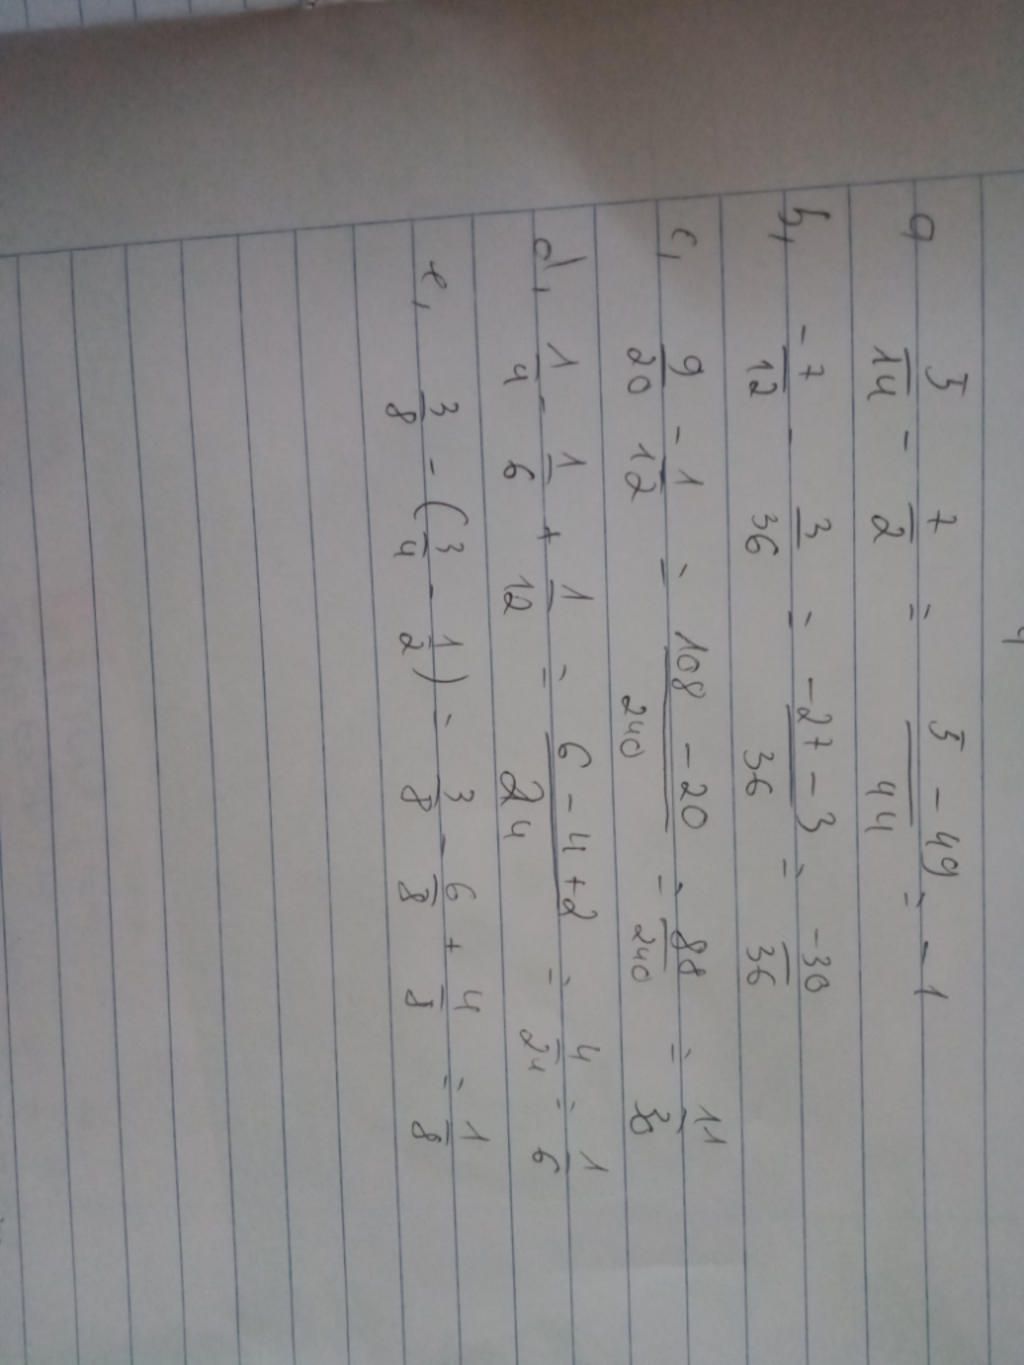 a 5/14 - 7/2 = 5 - 49/44 = -1
b, -7/12 - 3/36 = -27 - 3/36 = -30/36
c, 9/20 - 1/12 = 108 - 20/240 = 88/240 = 11/30
d, 1/4 - 1/6 + 1/12 = 6 - 4 + 2/24 = 4/24 = 1/6
e, 3/8 - (3/4 - 1/2) = 3/8 - 6/8 + 4/8 = 1/8